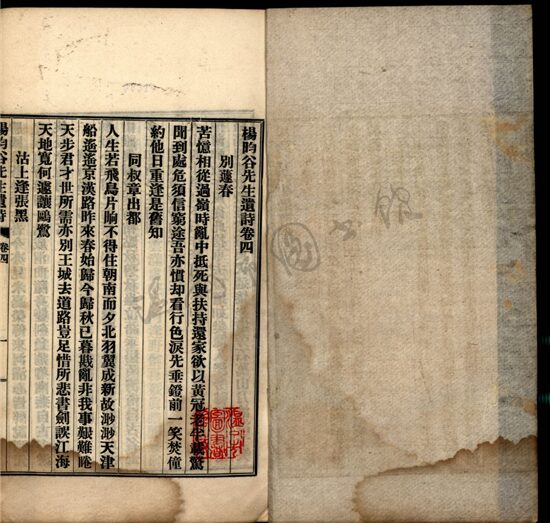 楊昀谷先生遺詩卷四
別蓮春
苦憶相從過嶺時亂中抵死與扶持還家欲以黃冠老
聞到處危須信窮途吾亦慣却看行色淚先垂鐙前一笑焚僮
約他日重逢是舊知
同叔章出都
人生若飛鳥片晌不得住朝南而夕北羽翼成新故渺渺天津
船遙遙京漢路昨來春始歸今歸秋已暮戡亂非我事艱難
天步君才世所需亦別王城去道路豈足惜所悲書劍誤江海
天地寬何遽讓鷗鷺
沽上逢張黑
楊昀谷先生遺詩 卷四